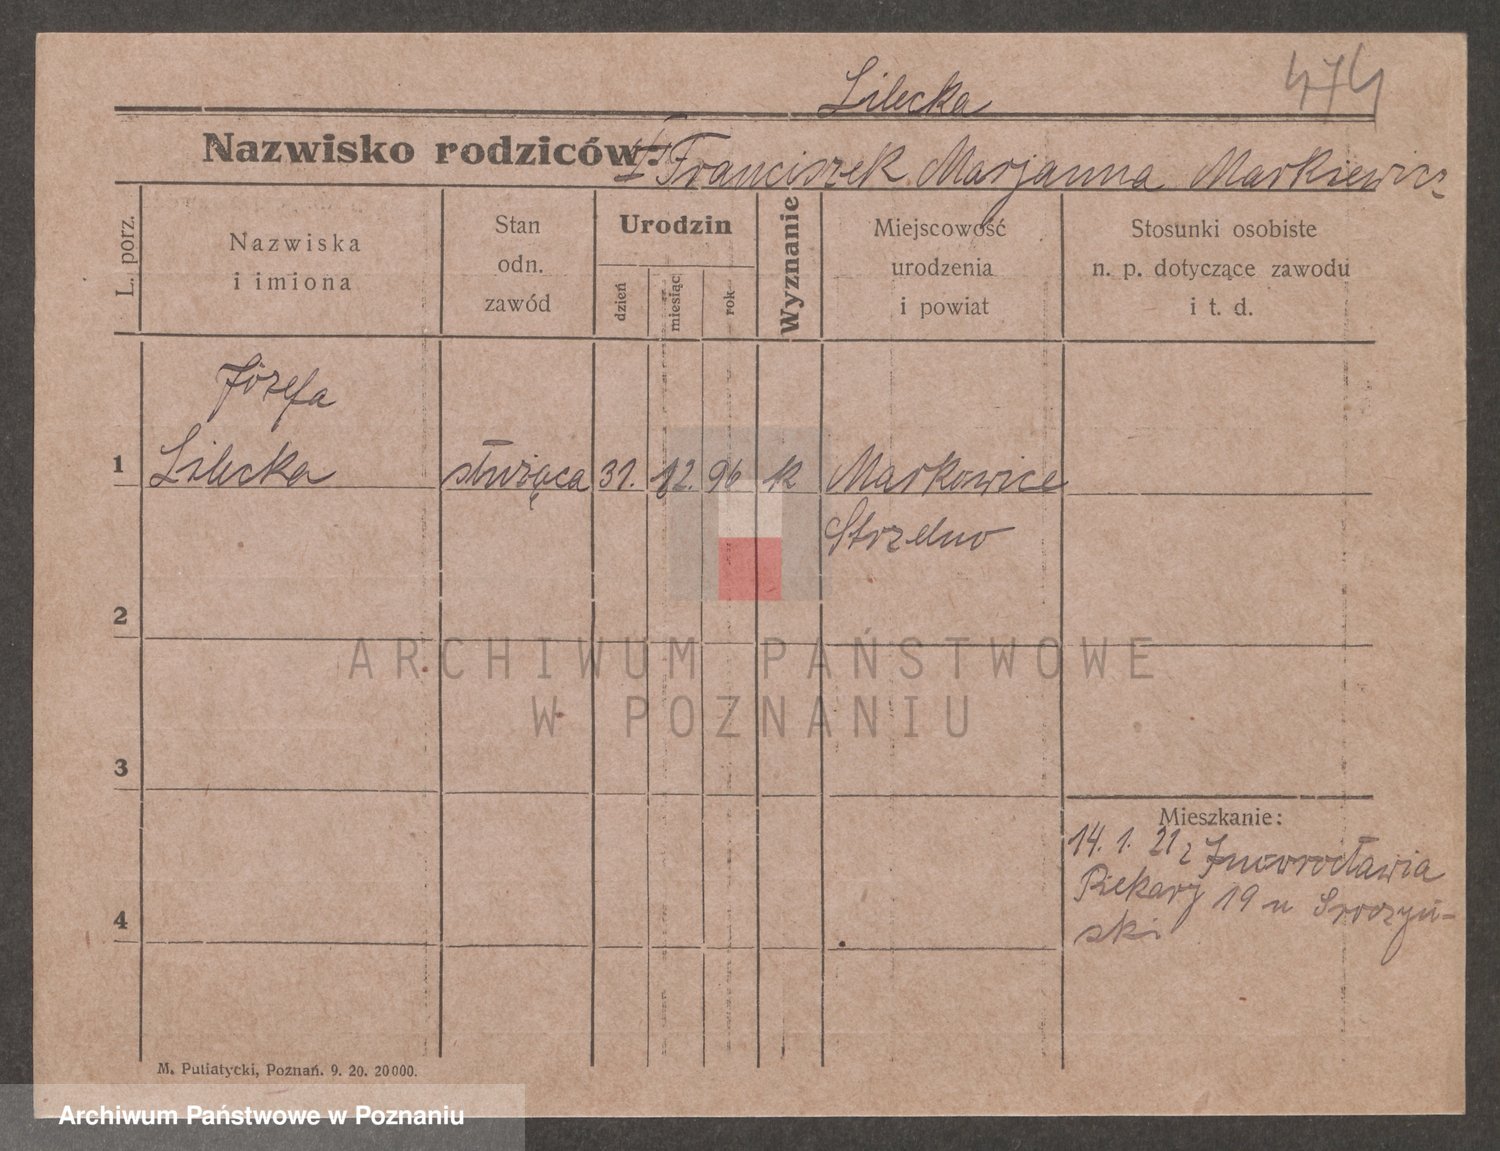 474
Lilecka
Nazwisko rodziców: Franciszek Marjanna Markiewicz
L. porz.
Nazwiska
i imiona
Stan
odn.
zawód
Urodzin
dzień
miesiąc
rok
Wyznanie
Miejscowość
urodzenia
i powiat
Stosunki osobiste
n. p. dotyczące zawodu
i t. d.
Józefa
1 Lilecka służąca 31. 12. 96 k Markowice
Strzelno
2
ARCHIWUM PAŃSTWOWE
W POZNANIU
3
Mieszkanie:
14. 1. 21 z Inowrocławia
Piekary 19 u
ski
4
M. Putiatycki, Poznań. 9. 20. 20000.
Archiwum Państwowe w Poznaniu